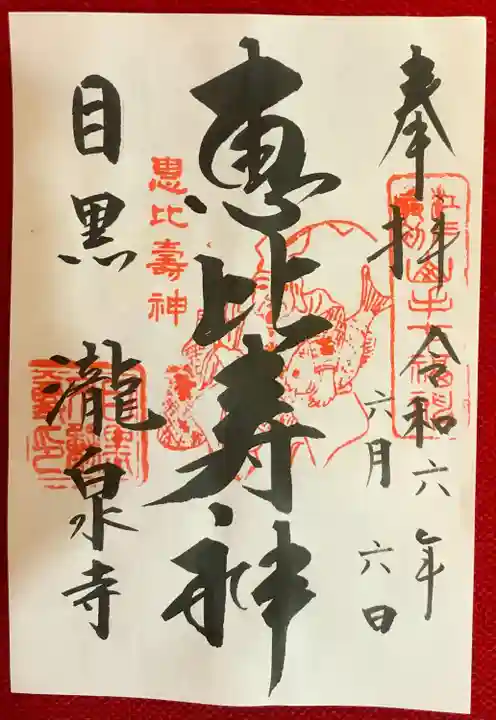 奉拝
令和六年
六月六日
恵比寿神
恵比壽神
目黒 瀧泉寺